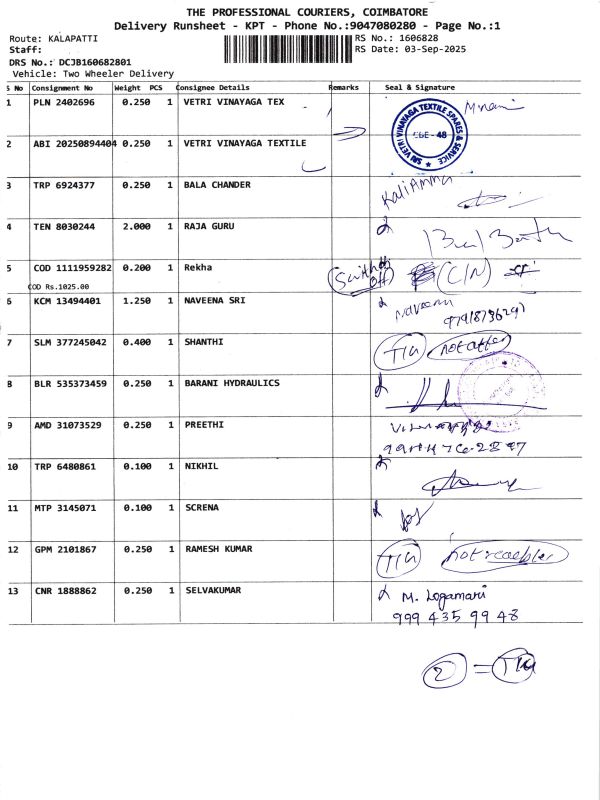 THE PROFESSIONAL COURIERS, COIMBATORE
Delivery Runsheet - KPT - Phone No.:9047080280 - Page No.:1
Route: KALAPATTI RS No.: 1606828
Staff: RS Date: 03-Sep-2025
DRS No.: DCJB160682801
Vehicle: Two Wheeler Delivery
S No Consignment No Weight PCS Consignee Details Remarks Seal & Signature
1 PLN 2402696 0.250 1 VETRI VINAYAGA TEX
SRI VETRI VINAYAGA TEXTILE SPARES & SERVICE
CBE - 48
2 ABI 20250894404 0.250 1 VETRI VINAYAGA TEXTILE
3 TRP 6924377 0.250 1 BALA CHANDER Kaliamma
4 TEN 8030244 2.000 1 RAJA GURU
5 COD 1111959282 0.200 1 Rekha Swithc off (C/N)
COD Rs.1025.00
6 KCM 13494401 1.250 1 NAVEENA SRI Naveena
9791873629
7 SLM 377245042 0.400 1 SHANTHI
8 BLR 535373459 0.250 1 BARANI HYDRAULICS
9 AMD 31073529 0.250 1 PREETHI
10 TRP 6480861 0.100 1 NIKHIL
11 MTP 3145071 0.100 1 SCRENA
12 GPM 2101867 0.250 1 RAMESH KUMAR
13 CNR 1888862 0.250 1 SELVAKUMAR M. Logamani
999 435 99 48
2 =